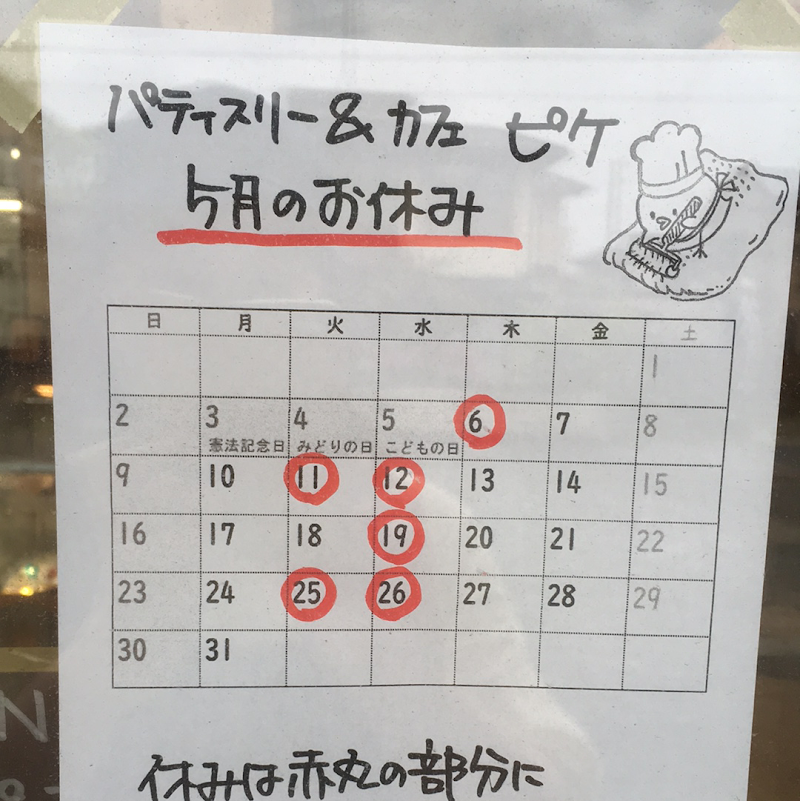 パティスリー&カフェ ピケ
5月のお休み
日 月 火 水 木 金 土
1
2 3 4 5 6 7 8
憲法記念日 みどりの日 こどもの日
9 10 11 12 13 14 15
16 17 18 19 20 21 22
23 24 25 26 27 28 29
30 31
休みは赤丸の部分に
N